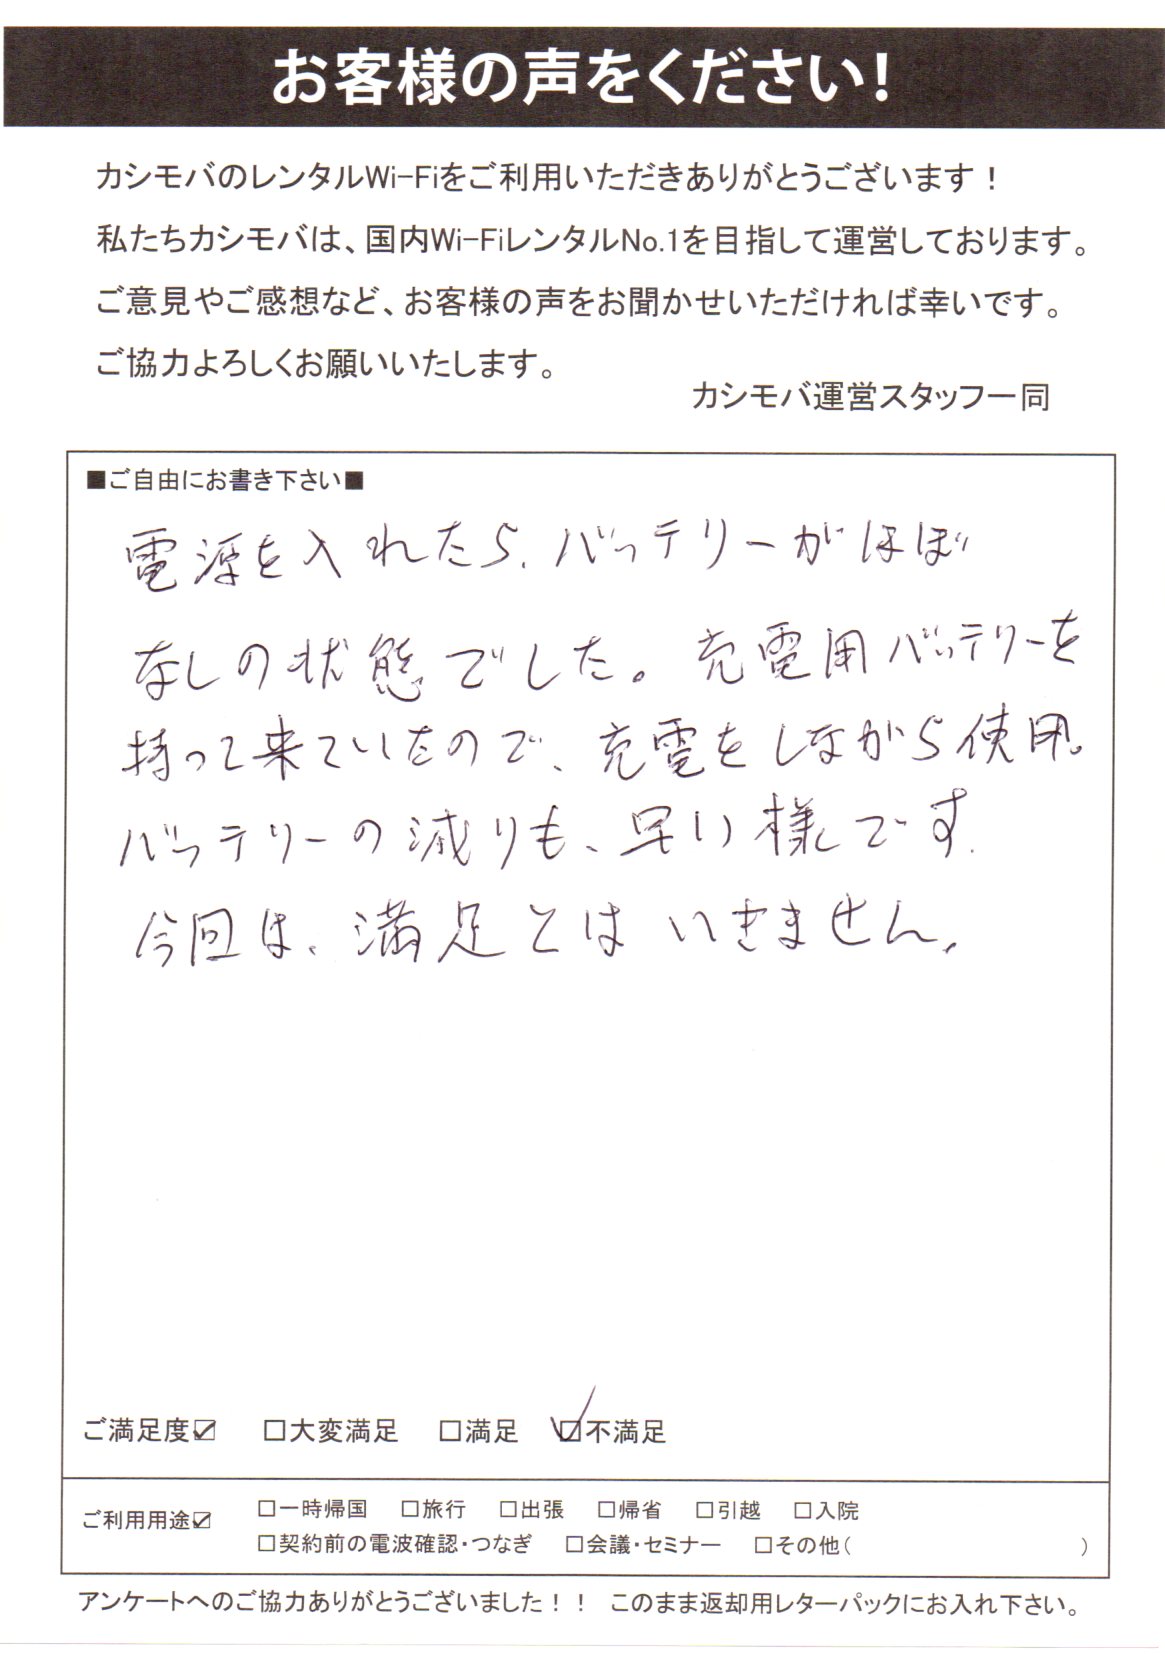 お客様の声をください！
カシモバのレンタルWi-Fiをご利用いただきありがとうございます！
私たちカシモバは、国内Wi-FiレンタルNo.1を目指して運営しております。
ご意見やご感想など、お客様の声をお聞かせいただければ幸いです。
ご協力よろしくお願いいたします。
カシモバ運営スタッフ一同
■ご自由にお書き下さい■
電源を入れたら、バッテリーがほぼ
なしの状態でした。充電用バッテリーを
持って来ていたので、充電をしながら使用。
バッテリーの減りも、早い様です.
今回は、満足とはいきません。
ご満足度☑ □大変満足 □満足 ☑不満足
ご利用用途☑ □一時帰国 □旅行 □出張 □帰省 □引越 □入院
□契約前の電波確認・つなぎ □会議・セミナー □その他( )
アンケートへのご協力ありがとうございました！！ このまま返却用レターパックにお入れ下さい。